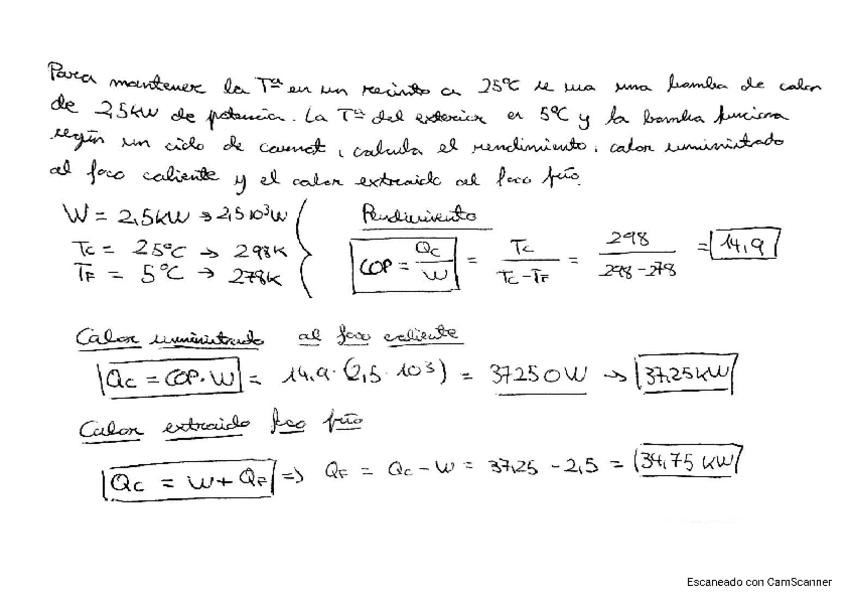 Para mantener la Tª en un recinto a 25ºC se usa una bomba de calor
de 2,5kW de potencia. La Tª del exterior es 5ºC y la bomba funciona
según un ciclo de carnot, calcula el rendimiento, calor suministrado
al foco caliente y el calor extraido al foco frío.
W = 2,5kW → 2,5 10³W
Tc = 25ºC → 298K
TF = 5ºC → 278K
Rendimiento
COP = Qc/W = Tc/(Tc-TF) = 298/(298-278) = 14,9
Calor suministrado al foco caliente
Qc = COP·W = 14,9·(2,5·10³) = 37250W → 37,25kW
Calor extraido foco frío
Qc = W + QF ⇒ QF = Qc - W = 37,25 - 2,5 = 34,75 kW
Escaneado con CamScanner